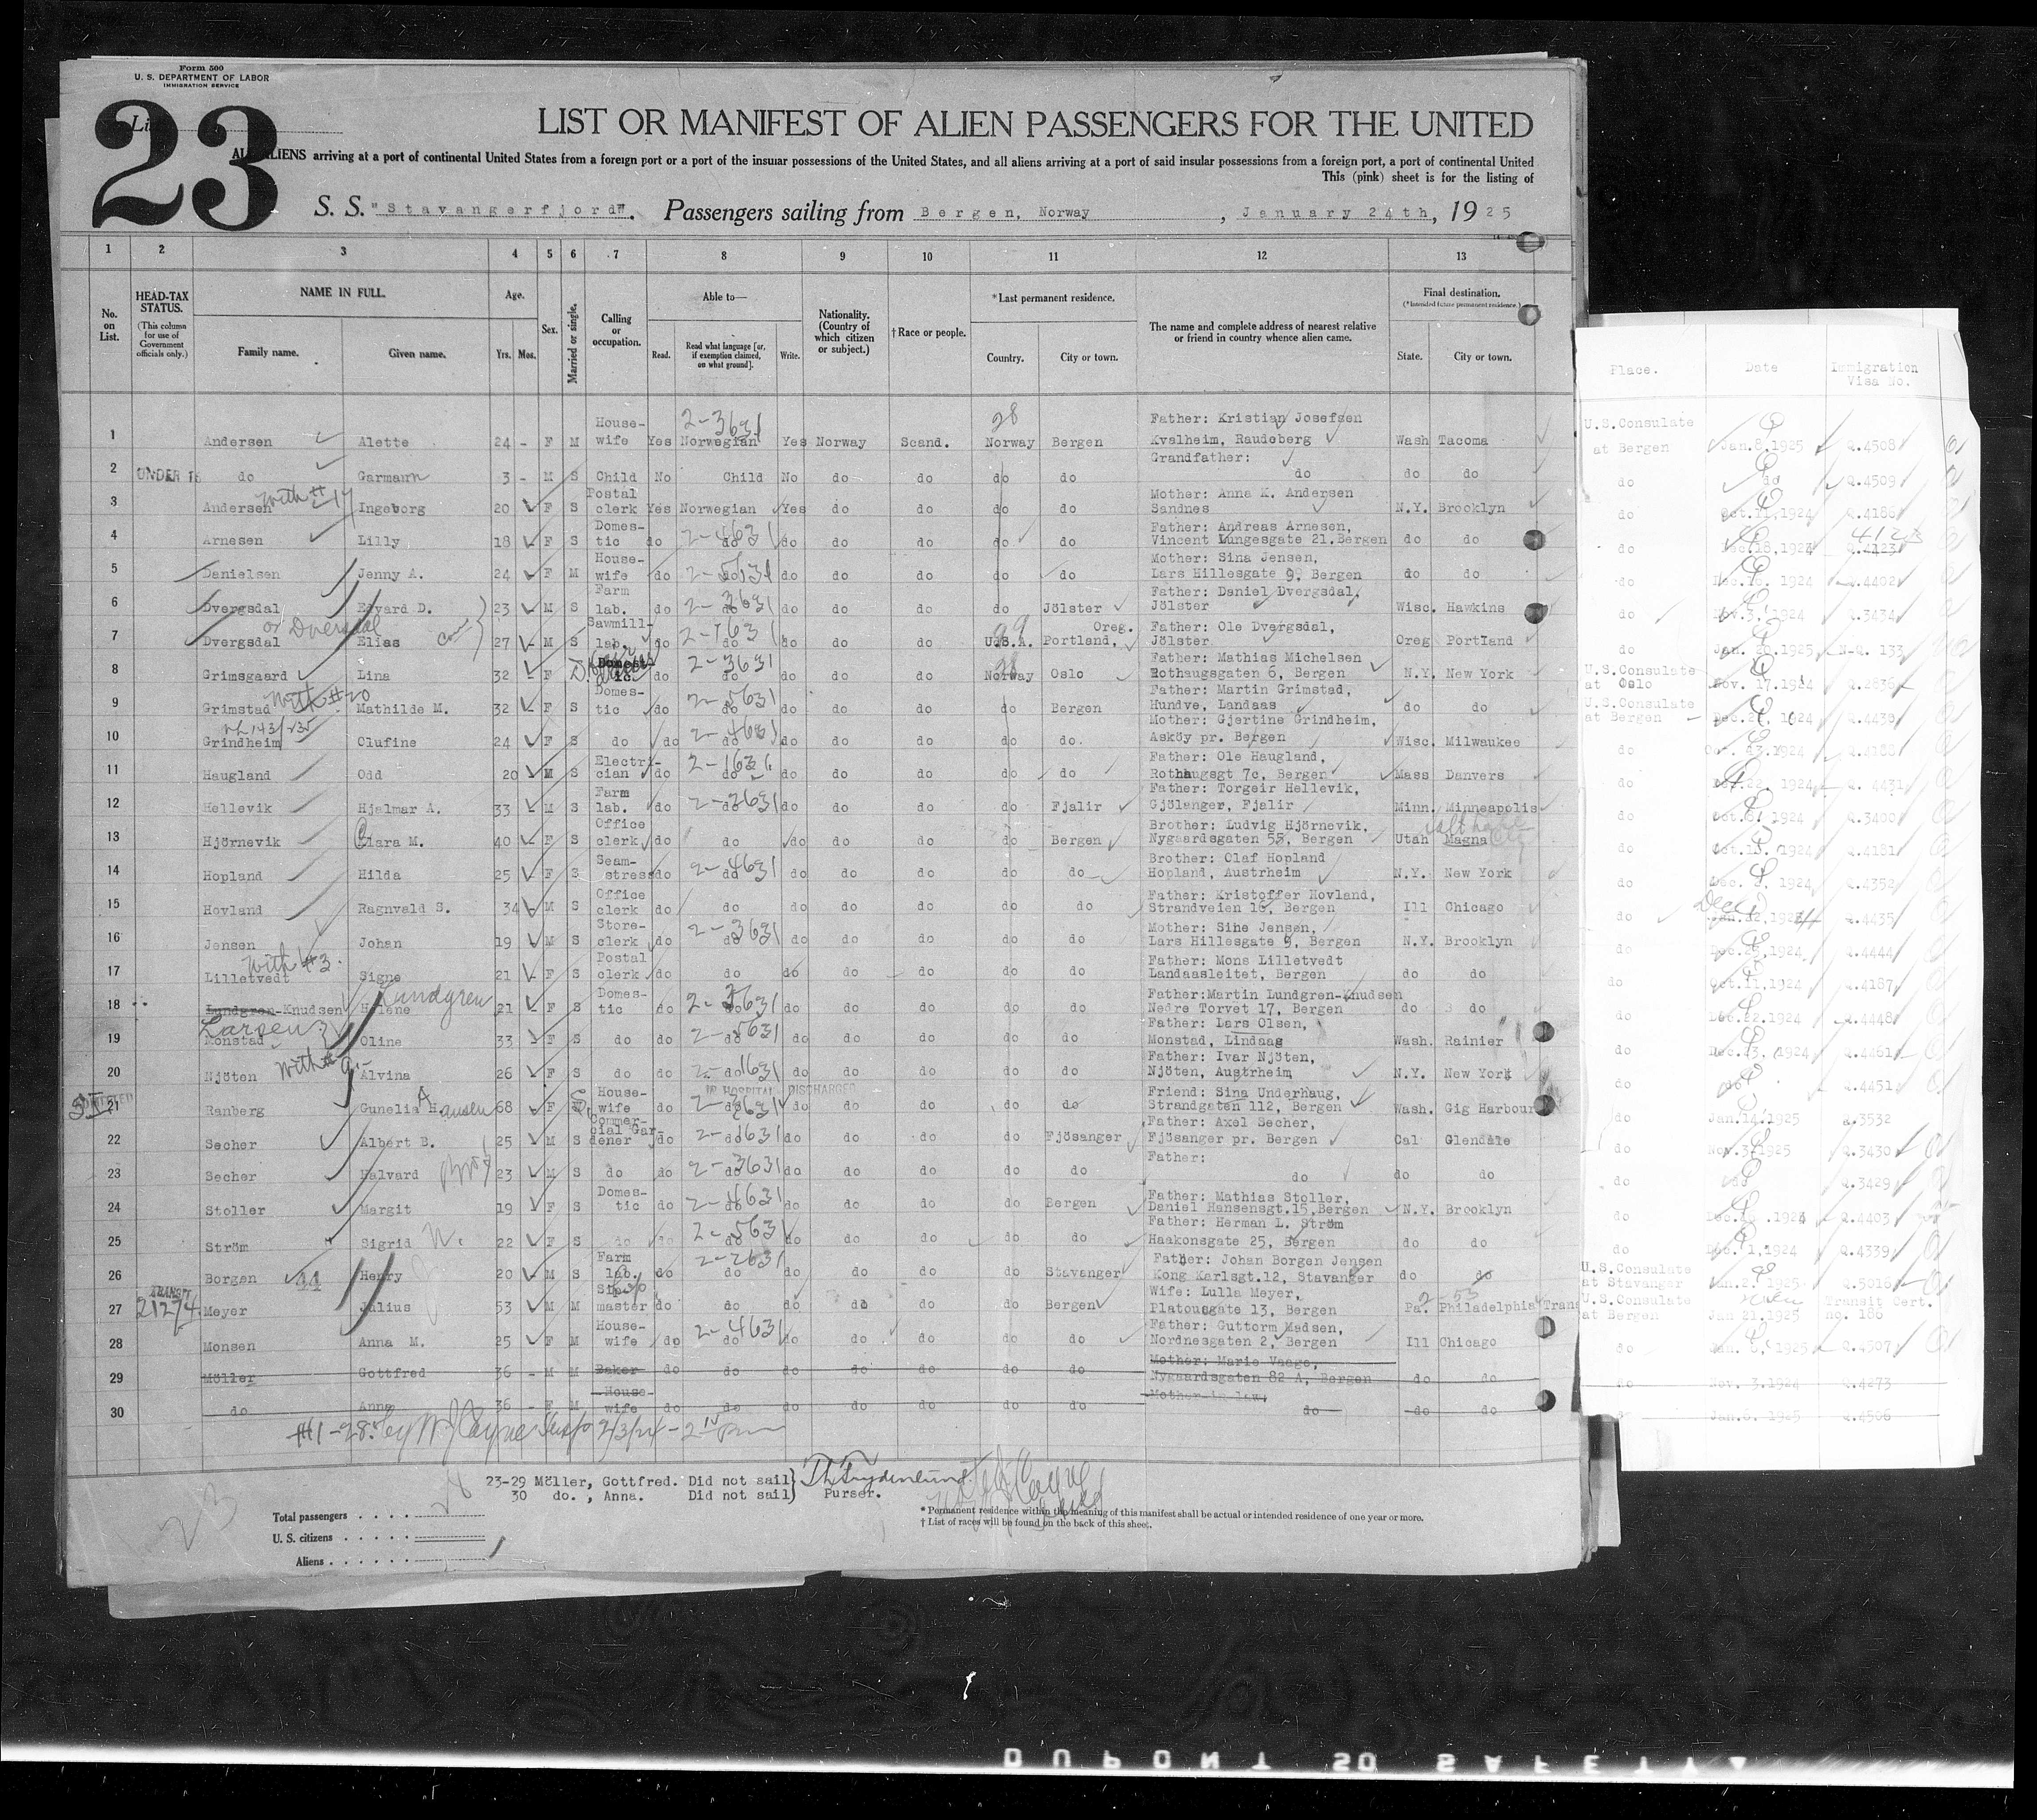 Form 500
U. S. DEPARTMENT OF LABOR
IMMIGRATION SERVICE
23
LIST OR MANIFEST OF ALIEN PASSENGERS FOR THE UNITED
ALL ALIENS arriving at a port of continental United States from a foreign port or a port of the insular possessions of the United States, and all aliens arriving at a port of said insular possessions from a foreign port, a port of continental United
This (pink) sheet is for the listing of
S. S. "Stavangerfjord". Passengers sailing from Bergen, Norway, January 24th, 1925
1 2 3 4 5 6 7 8 9 10 11 12 13
No. on List. HEAD-TAX STATUS. (This column for use of Government officials only.) NAME IN FULL. Family name. Given name. Age. Yrs. Mos. Sex. Married or single. Calling or occupation. Able to— Read. Read what language [or, if exemption claimed, on what ground]. Write. Nationality. (Country of which citizen or subject.) †Race or people. *Last permanent residence. Country. City or town. The name and complete address of nearest relative or friend in country whence alien came. Final destination. (*Intended future permanent residence.) State. City or town.
Place. Date Immigration Visa No.
1 Andersen Alette 24 - F M House-wife Yes Norwegian 2-3631 Yes Norway Scand. 28 Norway Bergen Father: Kristian Josefsen Kvalheim, Raudeberg Wash Tacoma U.S.Consulate at Bergen Jan.8,1925 Q.4508
2 UNDER 16 do Garmann 3 - M S Child No Child No do do do do Grandfather: do do do do do Q.4509
3 Andersen With # 17 Ingeborg 20 F S Postal clerk Yes Norwegian Yes do do do do Mother: Anna K. Andersen Sandnes N.Y. Brooklyn do Oct.11,1924 Q.4186
4 Arnesen Lilly 18 F S Domes-tic do do 2-4631 do do do do do Father: Andreas Arnesen, Vincent Lungesgate 21.Bergen do do do 1924 Q.4123 4123
5 Danielsen Jenny A. 24 F M House-wife do do 2-5631 do do do do do Mother: Sina Jensen, Lars Hillesgate 9, Bergen do do do Dec.16. 1924 Q.4402
6 Dvergsdal Edvard D. 23 M S Farm lab. do do 2-2631 do do do do Jölster Father: Daniel Dvergsdal, Jölster Wisc. Hawkins do Nov.3, 1924 Q.3434
7 Dvergsdal or Dversdal Elias 27 M S Sawmill-lab. do do 2-1631 do do do U.S.A. Portland, Oreg. Father: Ole Dvergsdal, Jölster Oreg Portland do Jan. 20.1925 N-Q. 133
8 Grimsgaard Lina 32 F D Domest-ic do do 2-3631 do do do 28 Norway Oslo Father: Mathias Michelsen Rothaugsgaten 6, Bergen N.Y. New York U.S.Consulate at Oslo Nov. 17.1924 Q.2836
9 Grimstad With # 20 Mathilde M. 32 F S Domes-tic do do 2-5631 do do do do Bergen Father: Martin Grimstad, Hundve, Landaas do do U.S.Consulate at Bergen Dec.22, 1924 Q.4430
10 Grindheim Olufine 24 F S do do do 2-4631 do do do do do. Mother: Gjertine Grindheim, Asköy pr. Bergen Wisc. Milwaukee do Oct. 13.1924 Q.4188
11 Haugland Odd 20 M S Electri-cian do do 2-1631 do do do do do Father: Ole Haugland, Rothaugsgt 7c, Bergen Mass Danvers do Dec.22. 1924 Q. 4431
12 Hellevik Hjalmar A. 33 M S Farm lab. do do 2-2631 do do do do Fjalir Father: Torgeir Hellevik, Gjölanger, Fjalir Minn. Minneapolis do Oct.8. 1924 Q.3400
13 Hjörnevik Clara M. 40 F S Office clerk do do do do do do Bergen Brother: Ludvig Hjörnevik, Nygaardsgaten 55, Bergen Utah Magna Salt Lake City do Oct.13. 1924 Q.4181
14 Hopland Hilda 25 F S Seam-stress do do 2-4631 do do do do do Brother: Olaf Hopland Hopland, Austrheim N.Y. New York do Dec. 1924 Q.4352
15 Hovland Ragnvald S. 34 M S Office clerk do do do do do do do Father: Kristoffer Hovland, Strandveien 16, Bergen Ill Chicago do Dec Jan.22,1924 Q.4435
16 Jensen Johan 19 M S Store-clerk do do 2-3631 do do do do do Mother: Sine Jensen, Lars Hillesgate 9, Bergen N.Y. Brooklyn do Dec.23,1924 Q.4444
17 Lilletvedt With #3. Signe 21 F S Postal clerk do do do do do do do Father: Mons Lilletvedt Landaasleitet, Bergen do do do Oct.11,1924 Q.4187
18 Lundgren-Knudsen Helene Lundgren 21 F S Domes-tic do do 2-3631 do do do do do Father:Martin Lundgren-Knudsen Nedre Torvet 17, Bergen do do do Dec.22.1924 Q.4448
19 Larsen Monstad Oline 33 F S do do do 2-5631 do do do do do Father: Lars Olsen, Monstad, Lindaas Wash. Rainier do Dec.23, 1924 Q.4461
20 Njöten With # 9. Alvina 26 F S do do do 2-1631 do do do do do Father: Ivar Njöten, Njöten, Austrheim N.Y. New York do do Q.4451
21 Ranberg Gunelia A Hansen 68 F House-wife do do 2-3631 IN HOSPITAL DISCHARGED do do do do do Friend: Sina Underhaug, Strandgaten 112, Bergen Wash. Gig Harbour do Jan.14.1925 Q.3532
22 Secher Albert B. 25 M S Commer-cial Gar-dener do do 2-1631 do do do do Fjösanger Father: Axel Secher, Fjösanger pr. Bergen Cal Glendale do Nov.3.1925 Q.3430
23 Secher Halvard 23 M S do do do 2-3631 do do do do do Father: do do do do do Q.3429
24 Stoller Margit 19 F S Domes-tic do do 2-4631 do do do do Bergen Father: Mathias Stoller, Daniel Hansensgt.15,Bergen N.Y. Brooklyn do Q.4403
25 Ström Sigrid N. 22 F S do do do 2-5631 do do do do do Father: Herman L. Ström Haakonsgate 25, Bergen do do do Dec. 1,1924 Q.4339
26 Borgen Henry 20 M S Farm lab. do do 2-2631 do do do do Stavanger Father: Johan Borgen Jensen Kong Karlsgt.12, Stavanger do do U.S.Consulate at Stavanger Jan.2. 1925 Q.5016
27 TRANSIT 21274 Meyer Julius 53 M M Ship master do do do do do do Bergen Wife: Lulla Meyer, Platousgate 13, Bergen Pa. Philadelphia Trans U.S.Consulate at Bergen Jan 21.1925 Transit Cert. no. 186
28 Monsen Anna M. 25 F M House-wife do do 2-4631 do do do do do Father: Guttorm Madsen, Nordnesgaten 2, Bergen Ill Chicago do Jan. 8, 1925 Q.4507
29 Möller Gottfred 36 - M M Baker do do do do do do do Mother: Marie Vaage, Nygaardsgaten 82 A, Bergen do do do Nov. 3.1924 Q.4273
30 do Anna 36 - F M House-wife do do do do do do do Mother-in law: do do do do Jan.8. 1925 Q.4506
23-29 Möller, Gottfred. Did not sail)
30 do. , Anna. Did not sail) Purser.
Total passengers
U. S. citizens
Aliens
* Permanent residence within the meaning of this manifest shall be actual or intended residence of one year or more.
† List of races will be found on the back of this sheet.
23
DUPONT SAFETY